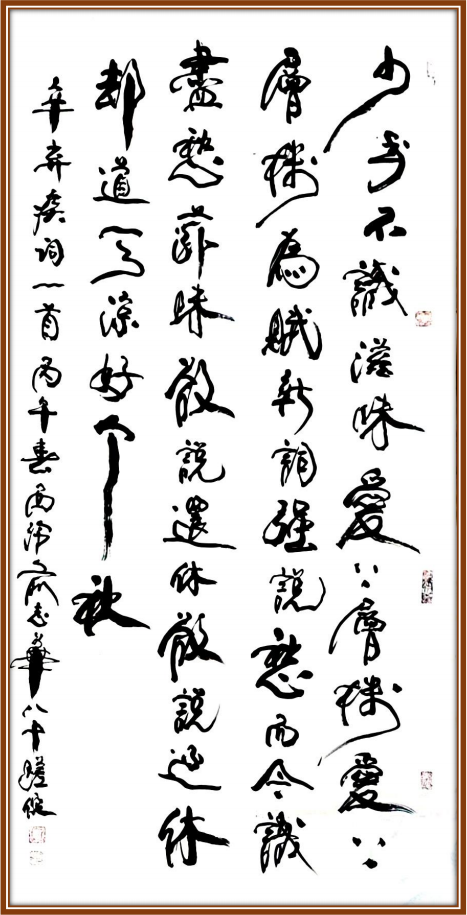 少年不識滋味愛上層樓愛上
層樓為賦新詞強說愁而今識
盡愁滋味欲說還休欲說還休
却道天涼好个秋
辛弃疾词一首丙午春志華八十